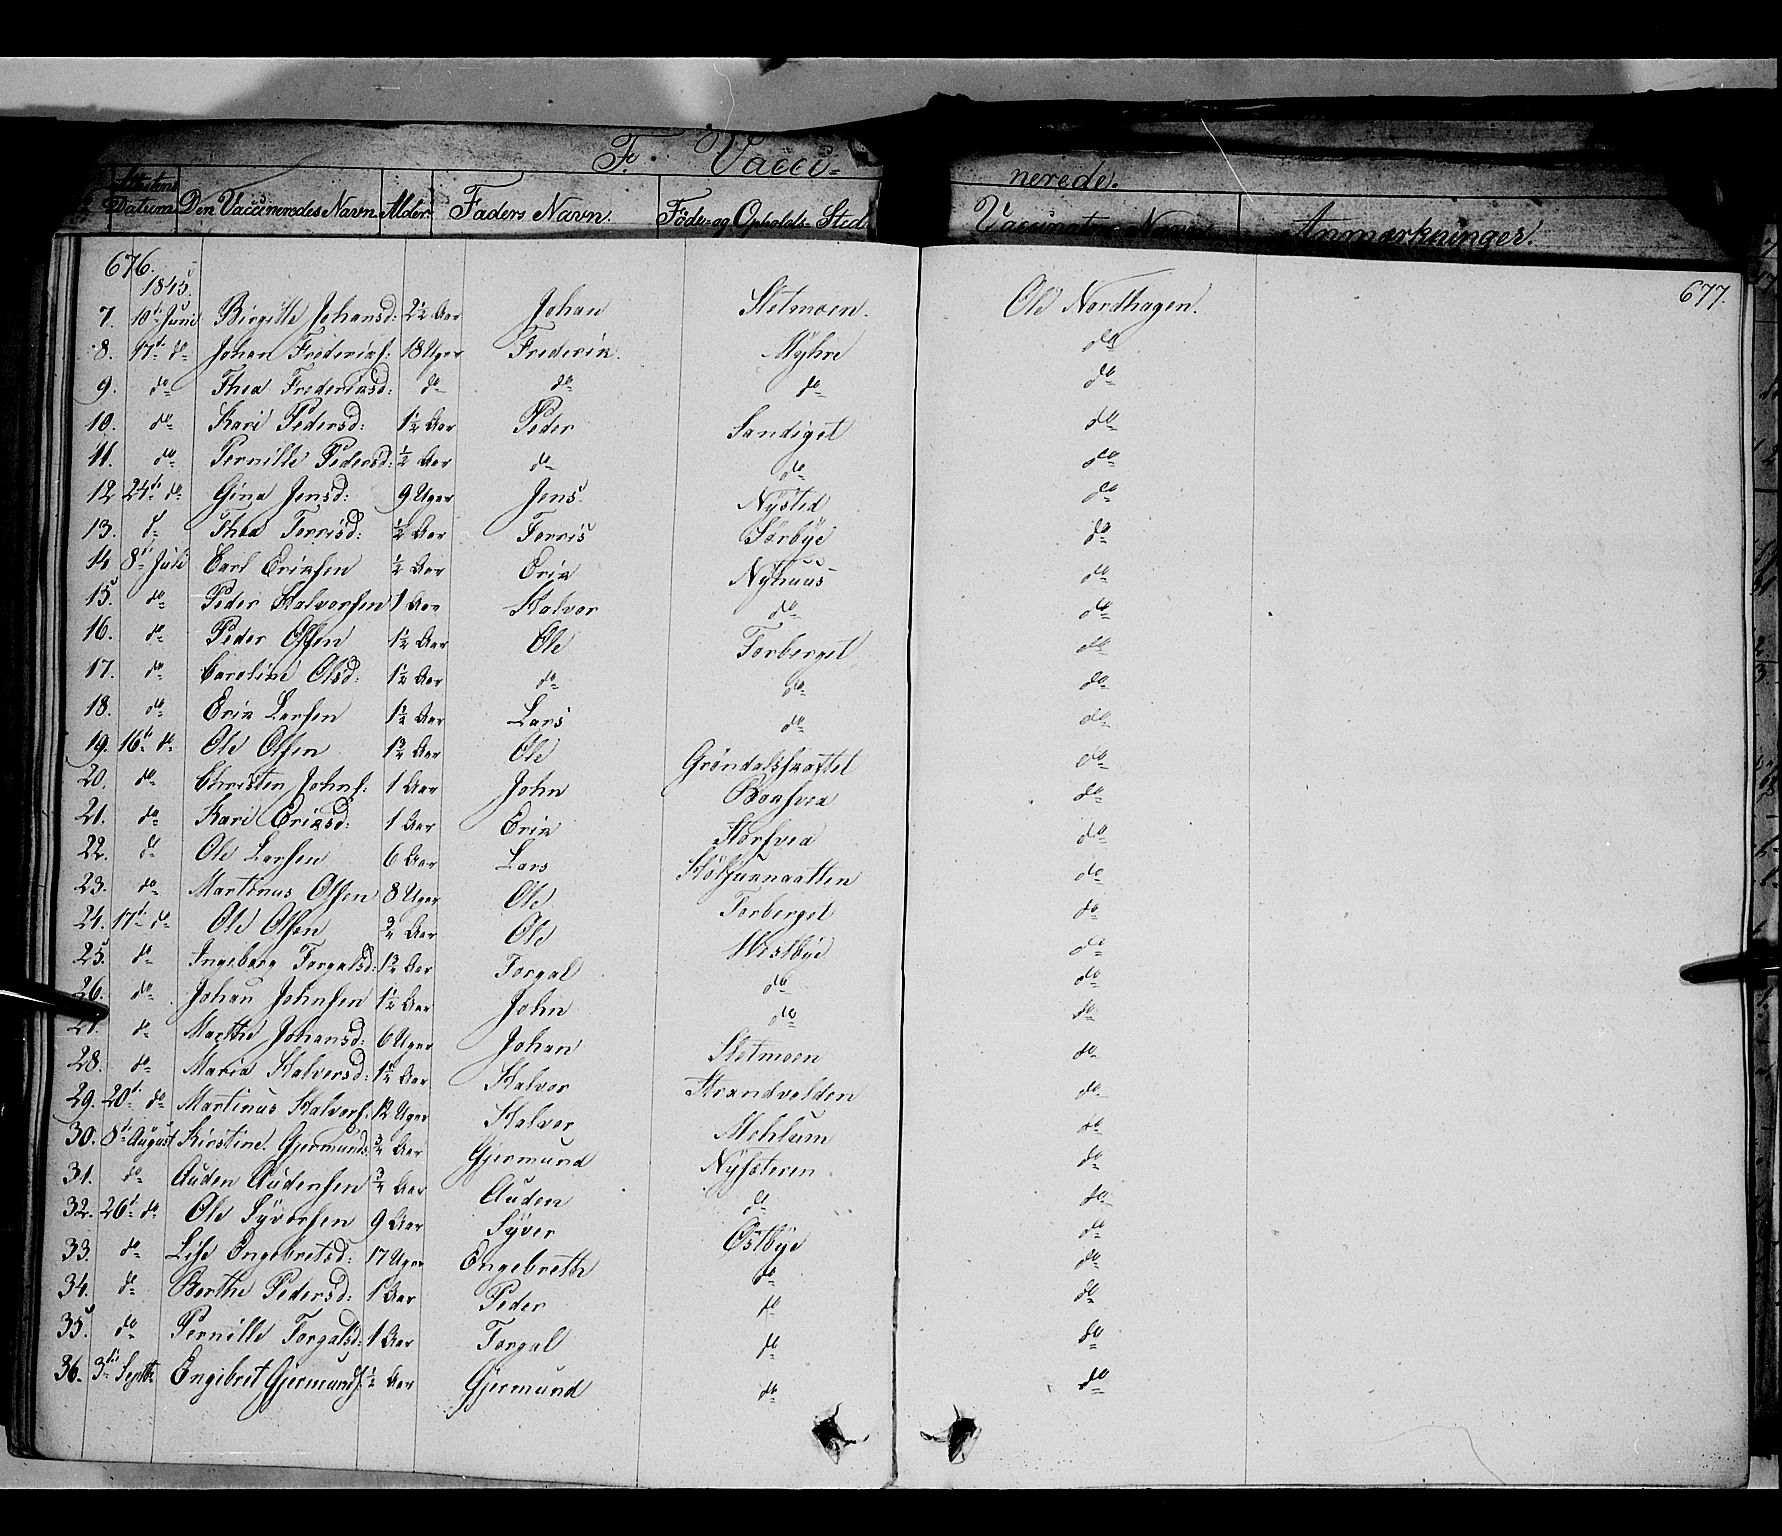 F. Vacci- nerede.
Attestens Datum Den Vaccineredes Navn. Alder. Faders Navn. Føde- og Opholds-Sted Vaccinators Navn Anmærkninger.
676. 677.
1845.
7. 10de Juni Birgitte Johansd: 2½ Aar Johan Sletmoen. Ole Nordhagen.
8. 17de do Johan Frederiks: 18 Uger Frederik. Myhre do
9. do Thea Frederiksd: do do do do
10. do Kari Pedersd: 1½ Aar Peder Sandiget do
11. do Pernille Pedersd: ½ Aar do do do
12 24de do Gina Jensd: 9 Uger Jens. Nysted do
13. do Thea Torrisd: ½ Aar Torris Sørbye do
14 8de Juli Carl Eriksen ½ Aar Erik Nyhuus do
15. do Peder Halvorsen 1 Aar Halvor do do
16. do Peder Olsen 1½ Aar Ole Torberget do
17. do Caroline Olsd: 1½ Aar do do do
18. do Erik Larsen 1½ Aar Lars do do
19. 16de do Ole Olsen Aar Ole do
20. do Christen Johns: 1 Aar John do
21. do Kari Eriksd: 1 Aar Erik do
22. do Ole Larsen 6 Aar Lars do
23. do Martinus Olsen 8 Uger Ole Torberget do
24. 17de do Ole Olsen Aar Ole Westbye do
25. do Ingeborg Torgalsd: Aar Torgal do do
26. do Johan Johnsen 1½ Aar John do do
27. do Marthe Johansd: 6 Uger Johan Sletmoen do
28. do Maria Halvorsd: 1½ Aar Halvor Strandvolden do
29. 20de do Martinus Halvors: 12 Uger Halvor Mehlum do
30. 8de August Kirstine Gjermunds Aar Gjermund Nysæteren do
31. do Auden Audensen Aar Auden do do
32. 26de do Ole Syversen 9 Aar Syver Østbye do
33. do Lise Engebretsd: 17 Uger Engebreth do do
34. do Berthe Pedersd: 1 Aar Peder do do
35. do Pernille Torgalsd: 1 Aar Torgal do do
36. 3die Septb. Engebret Gjermunds. ½ Aar Gjermund do do